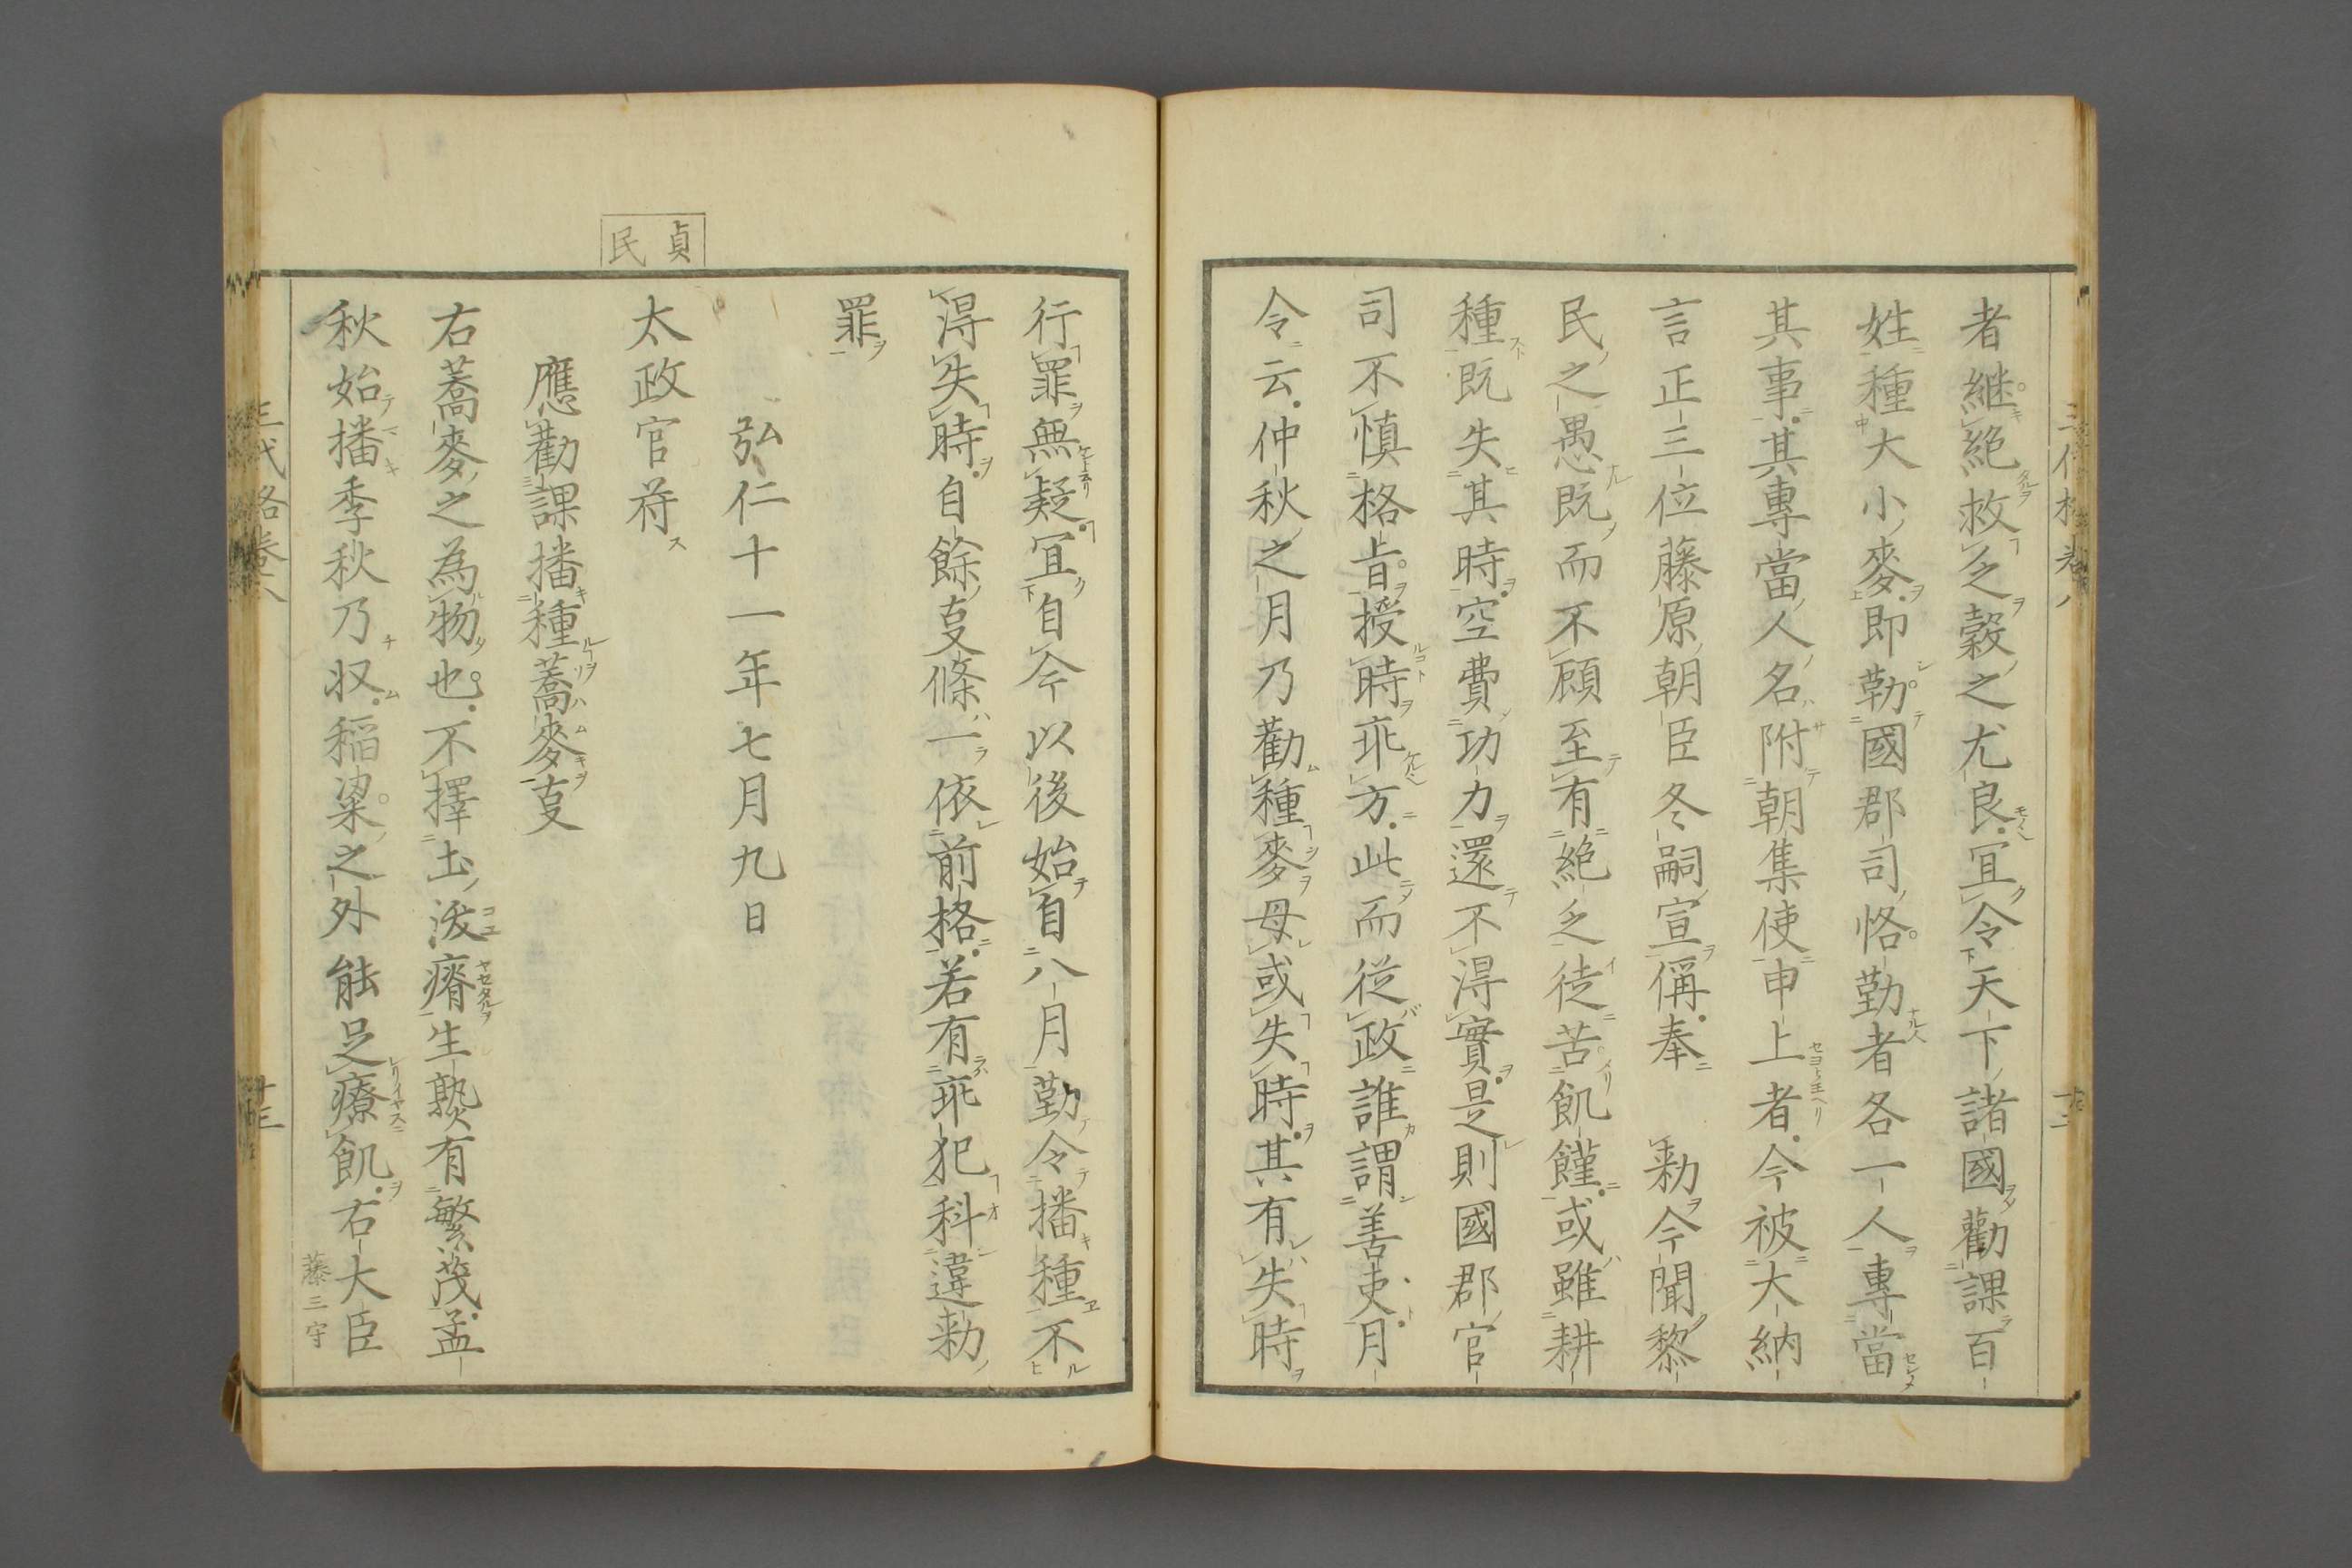 者継絶救乏穀之尤良冝令天下諸國勸課百
姓種大小麥即勒國郡司恪勤者各一人專當
其事其專當人名附朝集使申上者今被大納
言正三位藤原朝臣冬嗣宣偁奉 勅今聞黎
民之愚既而不顧至有絶乏徒苦飢饉或雖耕
種既失其時空費功力還不淂實是則國郡官
司不慎格旨授時乖方此而従政誰謂善吏月
令云仲秋之月乃勸種麥毋或失時其有失時
行罪無疑冝自今以後始自八月勤令播種不
淂失時自餘亊條一依前格若有乖犯科違勅
罪
弘仁十一年七月九日
貞民
太政官苻
應勸課播種蕎麥亊
右蕎麥之為物也不擇土沃瘠生熟有繁茂孟
秋始播季秋乃収稲粱之外能足療飢右大臣
藤三守
三代格卷八
十三